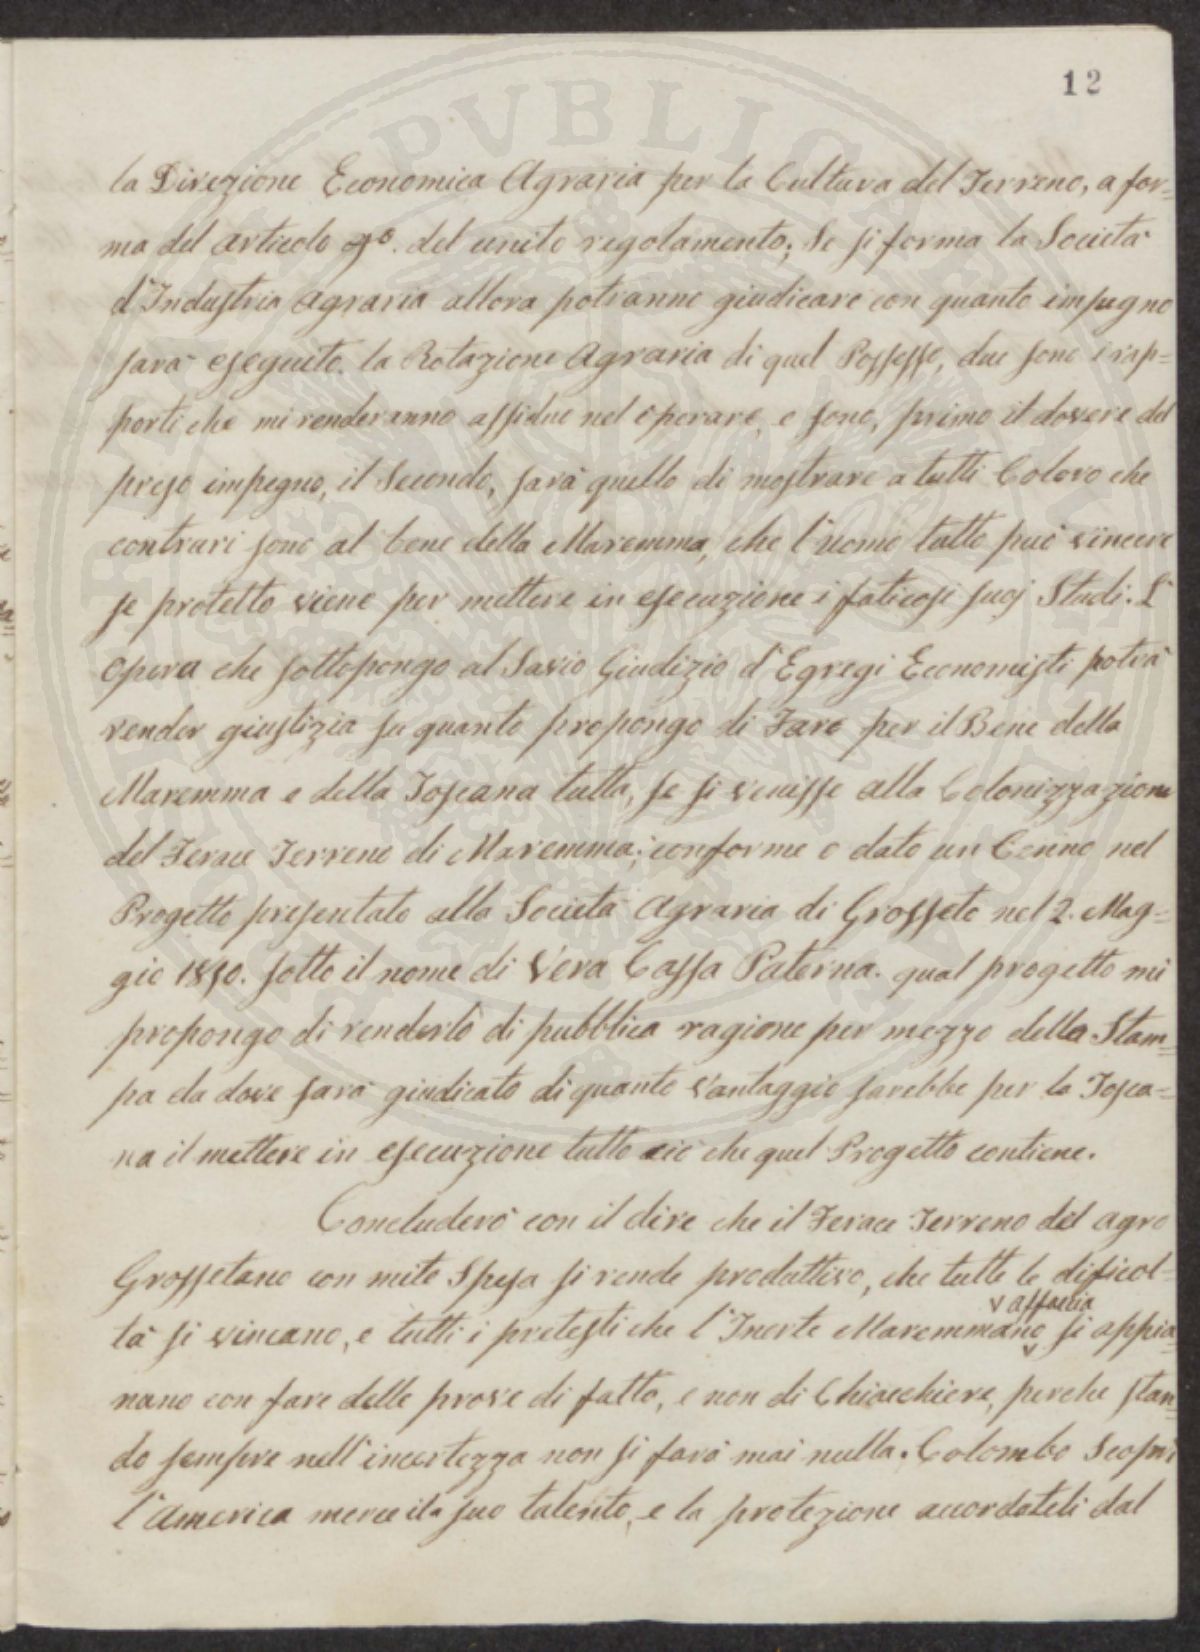 12
la Direzione Economica Agraria per la Cultura del Terreno, a for=
ma del articolo 9º. del unito regolamento; Se si forma la Società
d'Industria Agraria allora potranno giudicare con quanto impegno
sarà eseguito la Rotazione Agraria di quel Possesso, due sono i rap=
porti che mi renderanno assiduo nel operare, e sono, primo il dovere del
preso impegno, il Secondo, sarà quello di mostrare a tutti Coloro che
contrari sono al bene della Maremma, che l'uomo tutto può vincere
se protetto viene per mettere in esecuzione i faticosi suoj Studi. L'
Opera che sottopongo al Savio Giudizio d'Egregi Economisti potrà
render giustizia su quanto propongo di Fare per il Bene della
Maremma e della Toscana tutta, se si venisse alla Colonizzazione
del Ferace Terreno di Maremma; conforme o dato un Cenno nel
Progetto presentato alla Società Agraria di Grosseto nel 2. Mag=
gio 1850. sotto il nome di Vera Cassa Paterna. qual progetto mi
propongo di renderlo di pubblica ragione per mezzo della Stam=
pa da dove sarà giudicato di quanto Vantaggio sarebbe per la Tosca=
na il mettere in esecuzione tutto ciò che quel Progetto contiene.
Concluderò con il dire che il Ferace Terreno del agro
Grossetano con mite Spesa si rende produttivo, che tutte le dificol=
v affaccia
tà si vincano, e tutti i pretesti che l'Inerte Maremmano v si appia=
nano con fare delle prove di fatto, e non di Chiacchiere, perche stan=
do sempre nell'incertezza non si farà mai nulla. Colombo Scoprì
l'America merce il suo talento, e la protezione accordateli dal